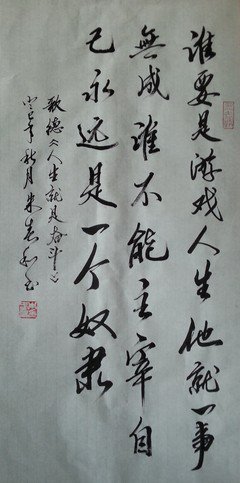 誰要是游戏人生他就一事
無成誰不能主宰自
己永远是一个奴隸
歌德《人生就是奋斗》
巳年秋月朱志书